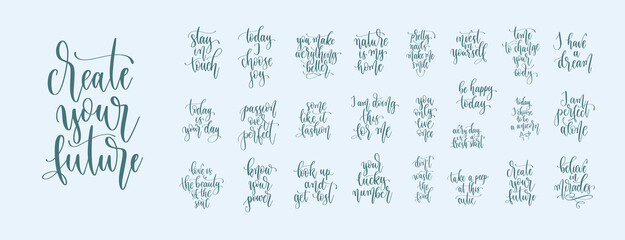 create
your
future
stay
in
touch
today
I
choose
joy
you make
everything
better
nature is
my
home
pretty
nails
make me
smile
invest
in
yourself
time
to change
your
body
I have
a
dream
today
is
your day
passion
over
perfect
some
like it
fashion
I am doing
this
for me
you
only
live
once
be happy
today
every day
is a
fresh start
today
I choose
to be
a unicorn
I am
perfect
alone
love is
the beauty
of the
soul
know
your
power
look up
and
get lost
your
lucky
number
don't
waste
the
take a peep
at this
cutie
create
your
future
believe
in
miracles